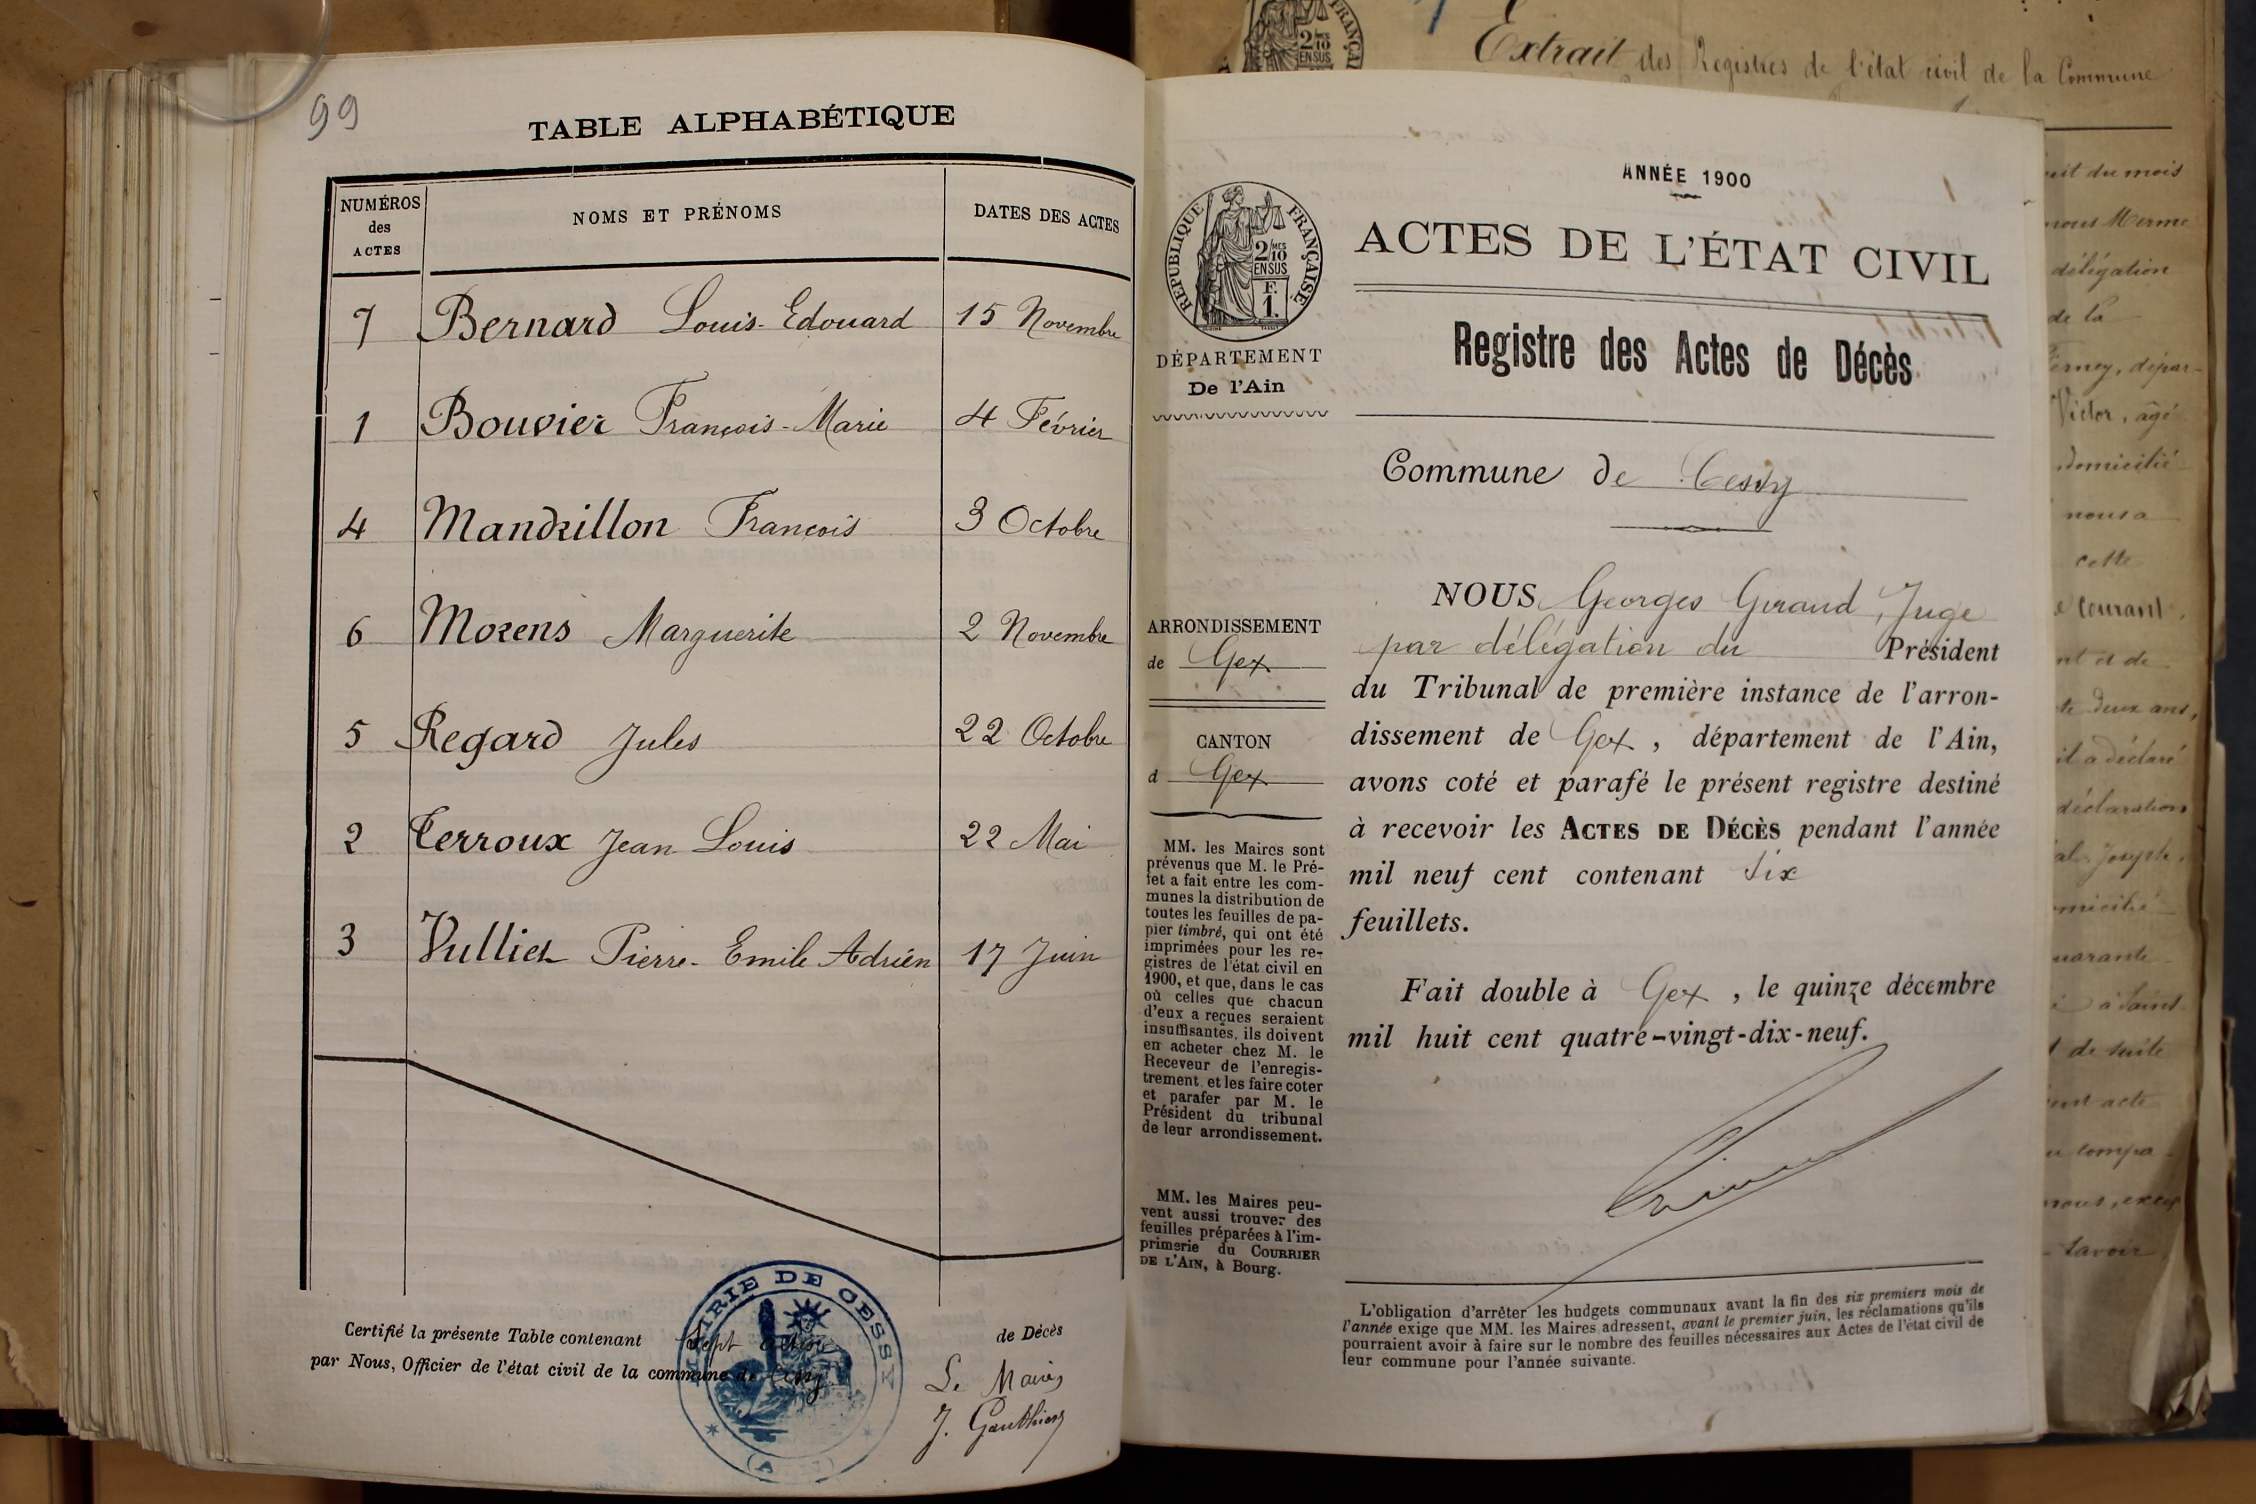 99
TABLE ALPHABÉTIQUE
NUMÉROS
des
ACTES
NOMS ET PRÉNOMS
DATES DES ACTES
7 Bernard Louis-Edouard 15 Novembre
1 Bouvier François-Marie 4 Février
4 Mandrillon François 3 Octobre
6 Morens Marguerite 2 Novembre
5 Regard Jules 22 Octobre
2 Terroux Jean Louis 22 Mai
3 Vulliez Pierre-Emile Adrien 17 Juin
Certifié la présente Table contenant Sept actes de Décès
par Nous, Officier de l'état civil de la commune de Cessy
MAIRIE DE CESSY
(AIN)
Le Maire,
J. Gauthier
ANNÉE 1900
ACTES DE L'ÉTAT CIVIL
RÉPUBLIQUE FRANÇAISE
2/10 MES
EN SUS
F.
1.
DÉPARTEMENT
De l'Ain
Registre des Actes de Décès
Commune de Cessy
ARRONDISSEMENT
de Gex
CANTON
d Gex
MM. les Maires sont
prévenus que M. le Pré-
fet a fait entre les com-
munes la distribution de
toutes les feuilles de pa-
pier timbré, qui ont été
imprimées pour les re-
gistres de l'état civil en
1900, et que, dans le cas
où celles que chacun
d'eux a reçues seraient
insuffisantes, ils doivent
en acheter chez M. le
Receveur de l'enregis-
trement et les faire coter
et parafer par M. le
Président du tribunal
de leur arrondissement.
MM. les Maires peu-
vent aussi trouver des
feuilles préparées à l'im-
primerie du COURRIER
DE L'AIN, à Bourg.
NOUS Georges Giraud, Juge
par délégation du Président
du Tribunal de première instance de l'arron-
dissement de Gex, département de l'Ain,
avons coté et parafé le présent registre destiné
à recevoir les ACTES DE DÉCÈS pendant l'année
mil neuf cent contenant six
feuillets.
Fait double à Gex, le quinze décembre
mil huit cent quatre-vingt-dix-neuf.
L'obligation d'arrêter les budgets communaux avant la fin des six premiers mois de
l'année exige que MM. les Maires adressent, avant le premier juin, les réclamations qu'ils
pourraient avoir à faire sur le nombre des feuilles nécessaires aux Actes de l'état civil de
leur commune pour l'année suivante.
2/10 MES
EN SUS
Extrait des Registres de l'état civil de la Commune
du mois
nous Merme
délégation
de la
Ferney, dépar-
Victor, âgé
domicilié
nous a
cette
courant,
et de
deux ans,
il a déclaré
déclaration
Joseph,
quarante
à Saint-
de suite
acte
compa-
nous,
savoir